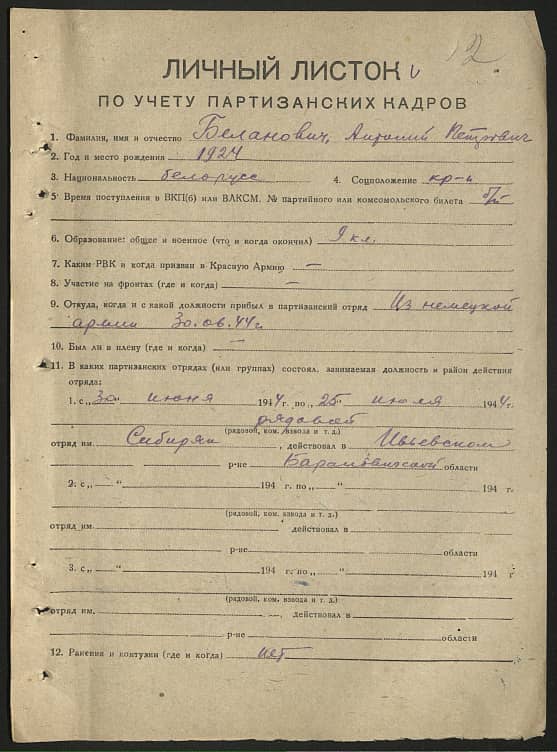 12
ЛИЧНЫЙ ЛИСТОК
ПО УЧЕТУ ПАРТИЗАНСКИХ КАДРОВ
1. Фамилия, имя и отчество Беланович, Антоний Петрович
2. Год и место рождения 1924
3. Национальность белорусс 4. Соцположение кр-н
5 Время поступления в ВКП(б) или ВЛКСМ. № партийного или комсомольского билета б/п
6. Образование: общее и военное (что и когда окончил) 9 кл.
7. Каким РВК и когда призван в Красную Армию —
8. Участие на фронтах (где и когда) —
9. Откуда, когда и с какой должности прибыл в партизанский отряд Из немецкой
армии 30.06.44 г.
10. Был ли в плену (где и когда) —
11. В каких партизанских отрядах (или группах) состоял, занимаемая должность и район действия
отряда:
1. с „30 июня 1944 г. по „25" июля 1944 г.
рядовой
(рядовой, ком. взвода и т. д.)
отряд им. Сибиряк, действовал в Ивьевском
р-не Барановичской области
2. с „ — " 194 г. по „ — " 194 г.
(рядовой, ком. взвода и т. д.)
отряд им. , действовал в
р-не области
3. с „ — " 194 г. по „ — " 194 г
(рядовой, ком. взвода и т. д.)
отряд им. —, действовал в
р-не области
12. Ранения и контузии (где и когда) нет